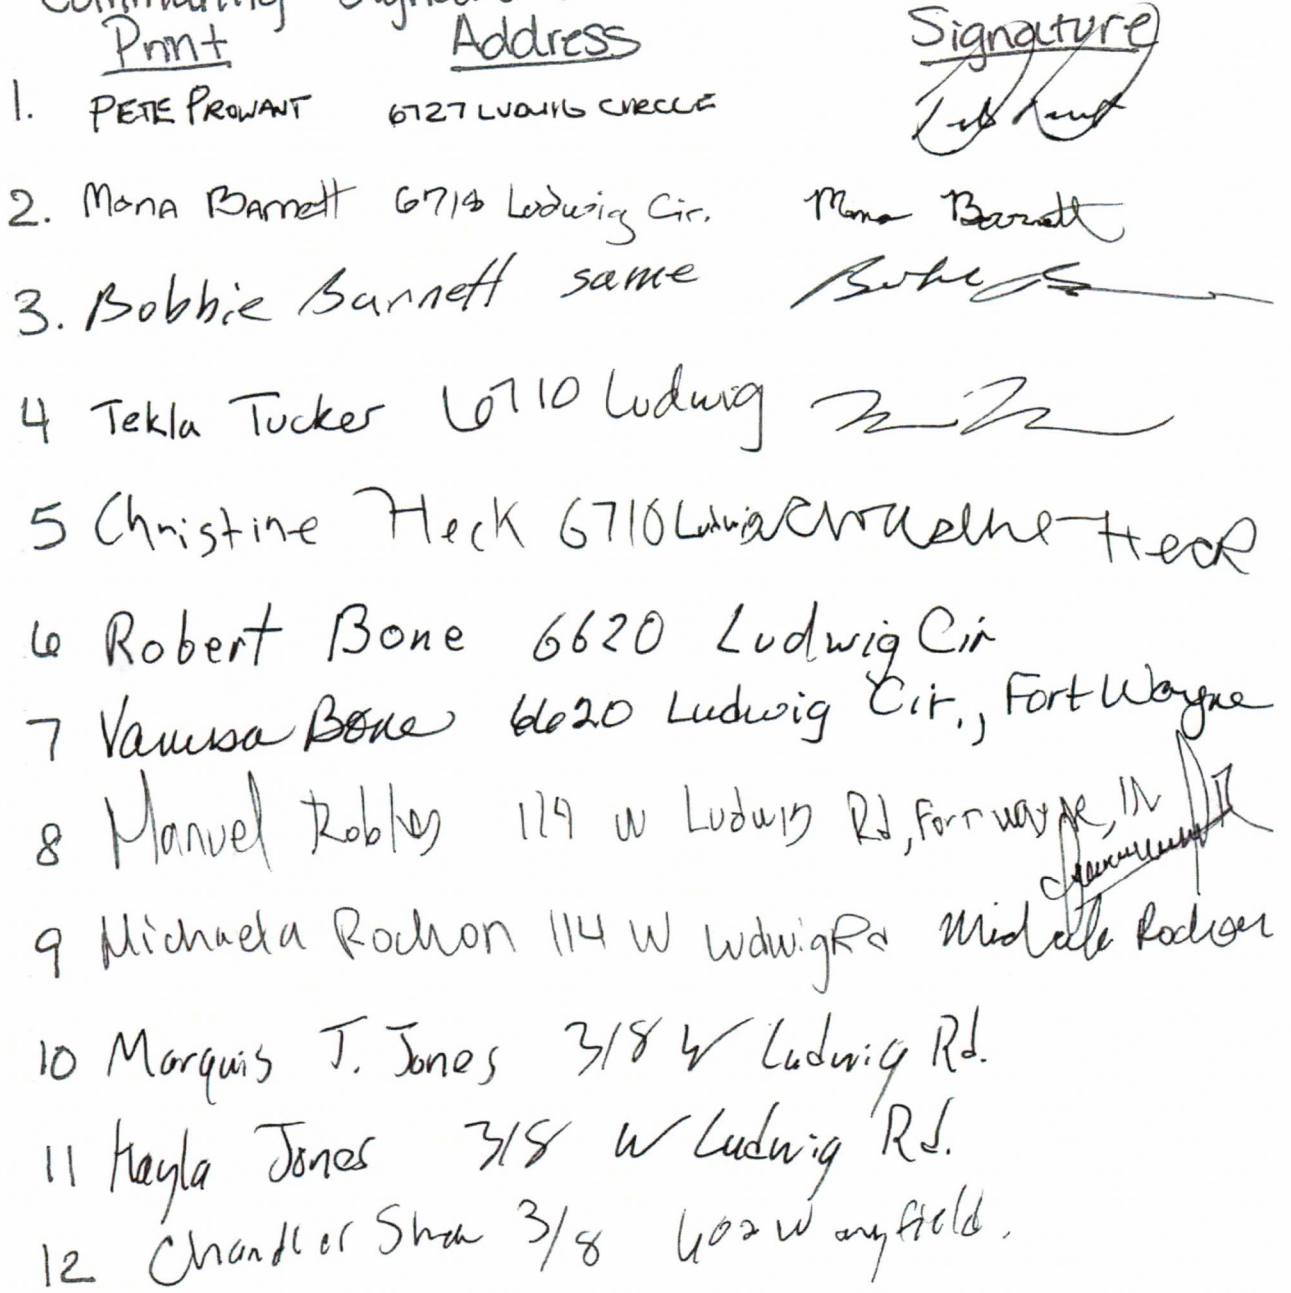 Community Signatures
Print Address Signature
1. PETE PROWANT 6727 LUDWIG CIRCLE
2. Mona Barnett 6718 Ludwig Cir. Mona Barnett
3. Bobbie Barnett same
4 Tekla Tucker 6710 Ludwig
5 Christine Heck 6710 Ludwig Christine Heck
6 Robert Bone 6620 Ludwig Cir
7 Vanessa Bone 6620 Ludwig Cir., Fort Wayne
8 Manuel Robles 114 W Ludwig Rd, Fort wayne, IN
9 Michaela Rochon 114 W Ludwig Rd Rochon
10 Marquis J. Jones 318 W Ludwig Rd.
11 Kayla Jones 318 W Ludwig Rd.
12 Chandler 3/8 602 W